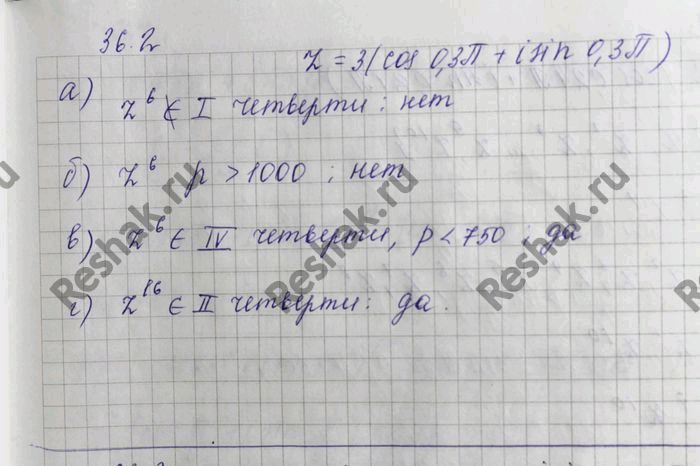 36.2
z = 3(cos 0,3π + i sin 0,3π)
а) z⁶ ∉ I четверти : нет
б) z⁶ p > 1000 ; нет
в) z⁶ ∈ IV четверти, p < 750 ; да
г) z¹⁶ ∈ II четверти : да.
Reshak.ru
Reshak.ru
Reshak.ru